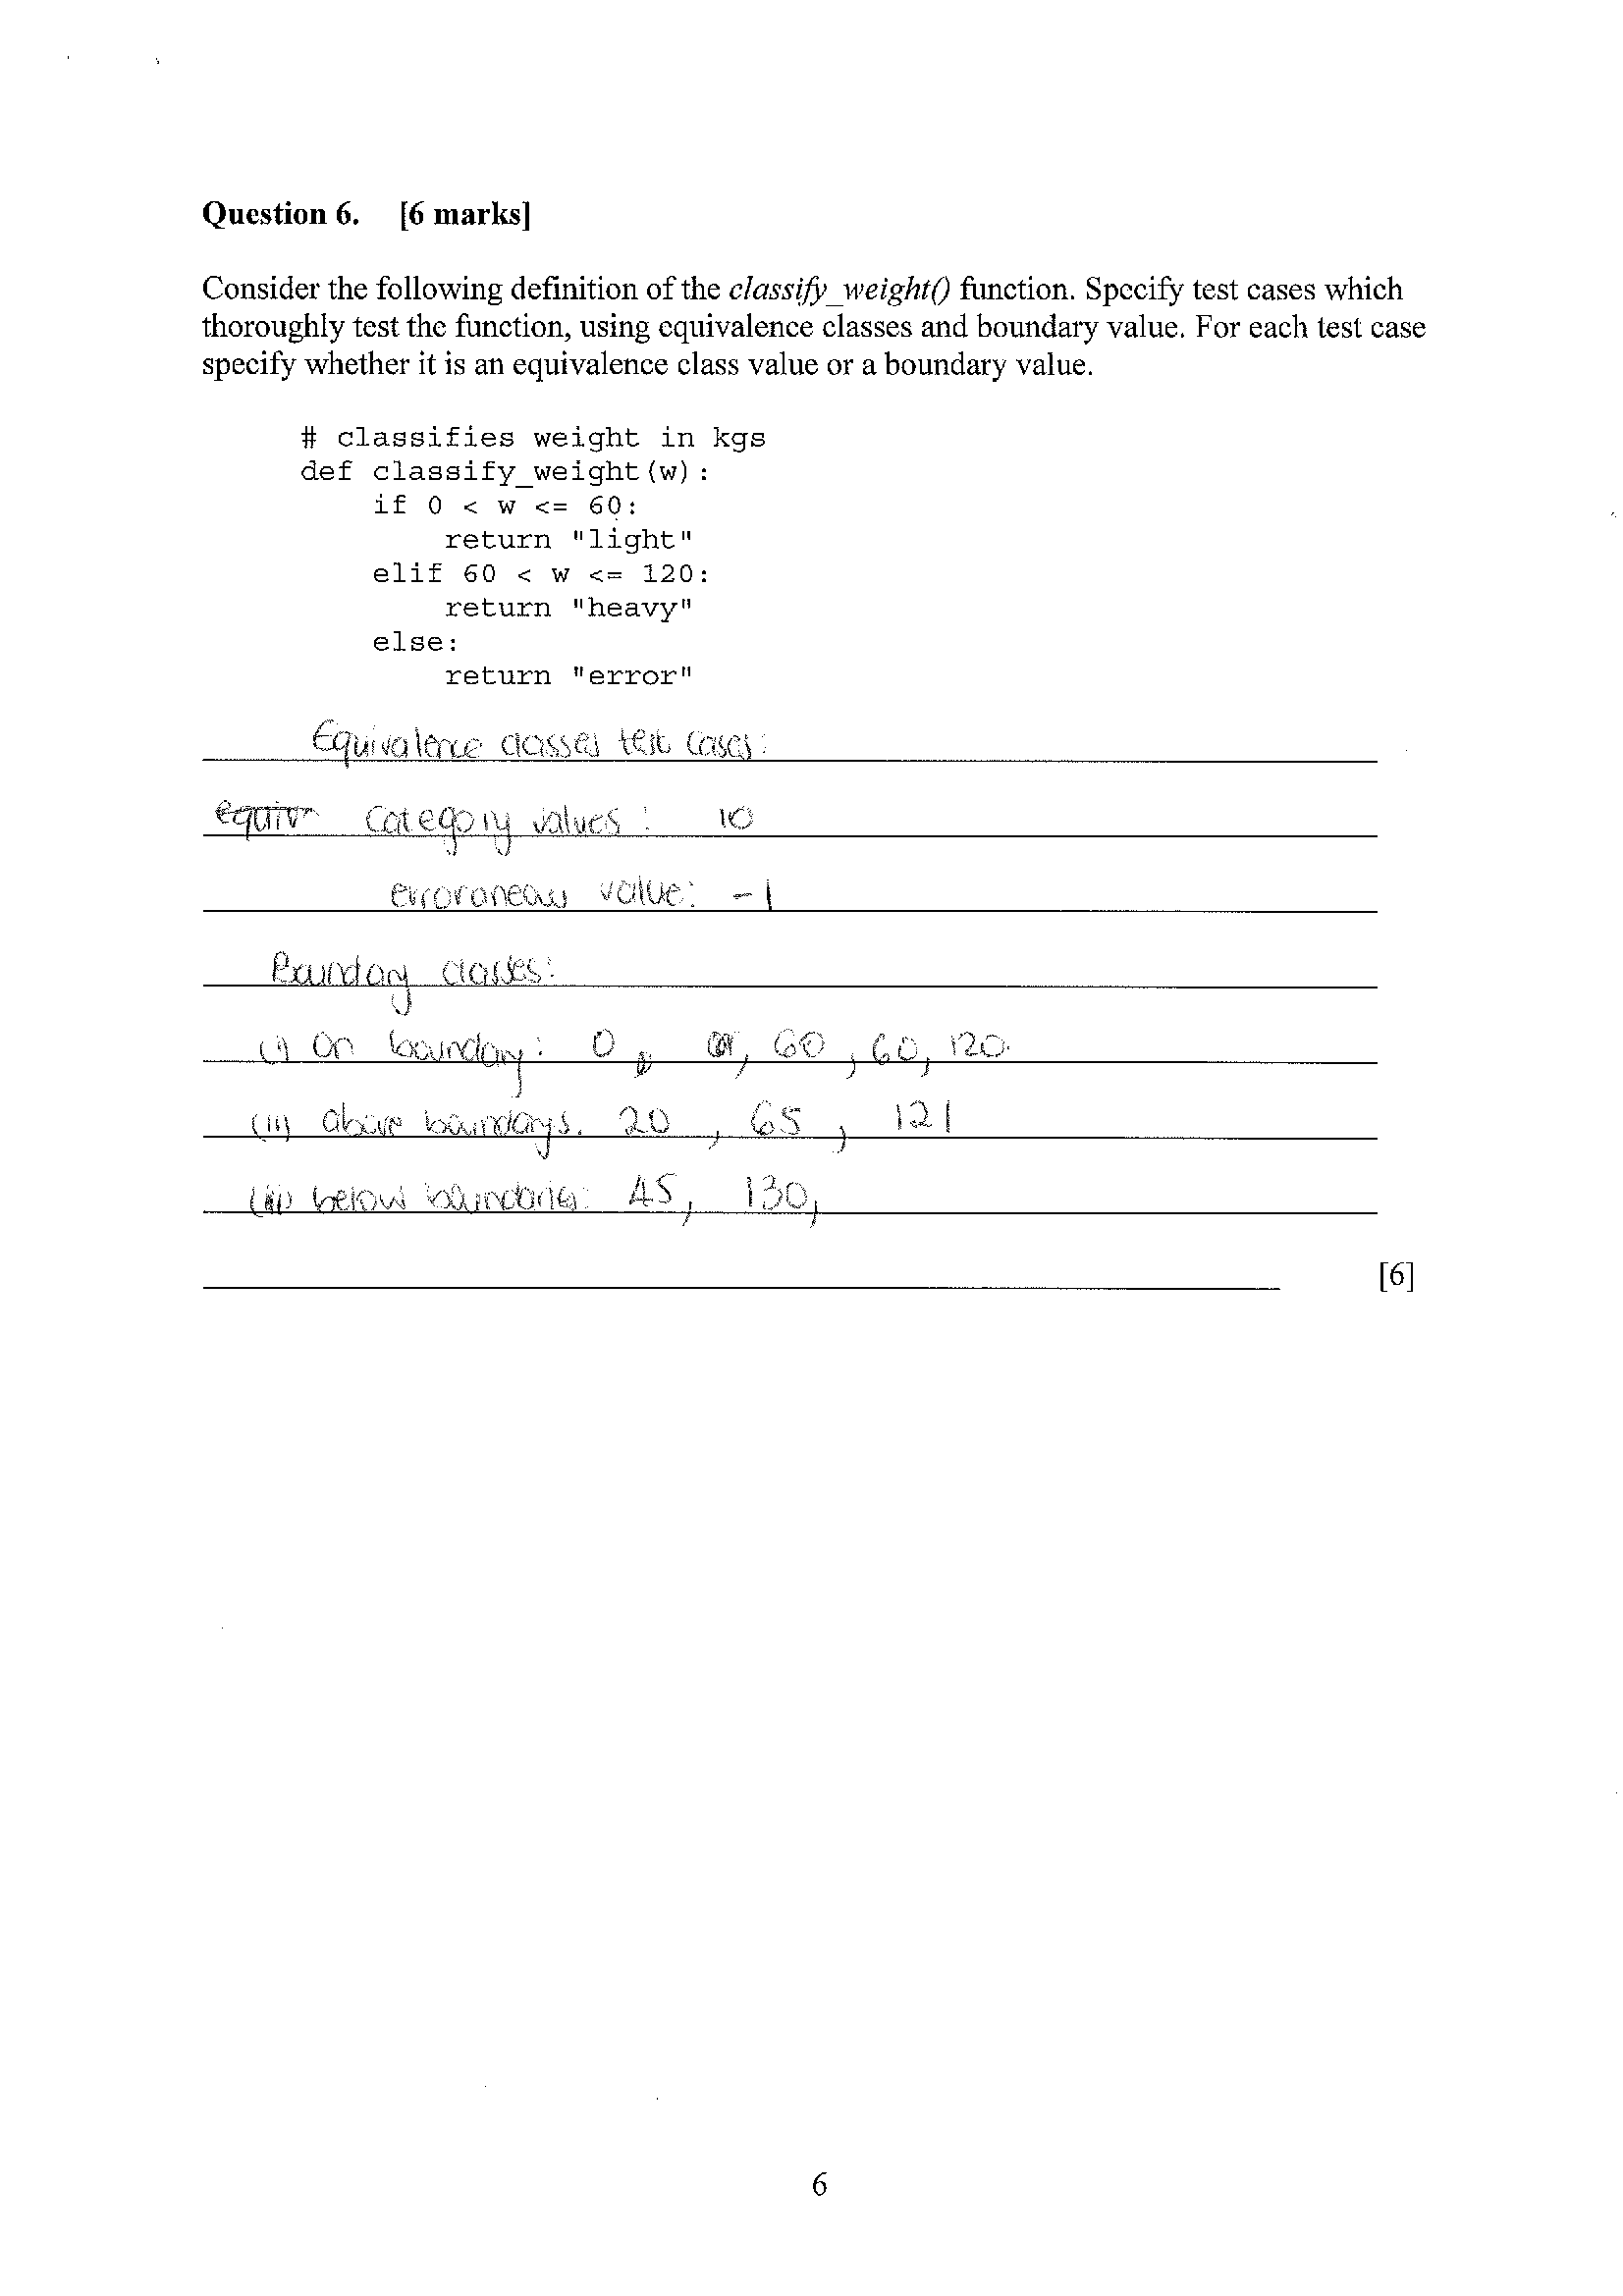 Question 6. [6 marks]
Consider the following definition of the classify_weight() function. Specify test cases which
thoroughly test the function, using equivalence classes and boundary value. For each test case
specify whether it is an equivalence class value or a boundary value.
# classifies weight in kgs
def classify_weight(w):
    if 0 < w <= 60:
        return "light"
    elif 60 < w <= 120:
        return "heavy"
    else:
        return "error"
Equivalence classes test cases:
equiv category values : 10
erroroneous value: -1
Boundary classes:
(i) on boundary: 0 , , 60 , 60, 120.
(ii) above boundarys. 20 , 65 , 121
(iii) below boundaries: 45, 130,
[6]
6